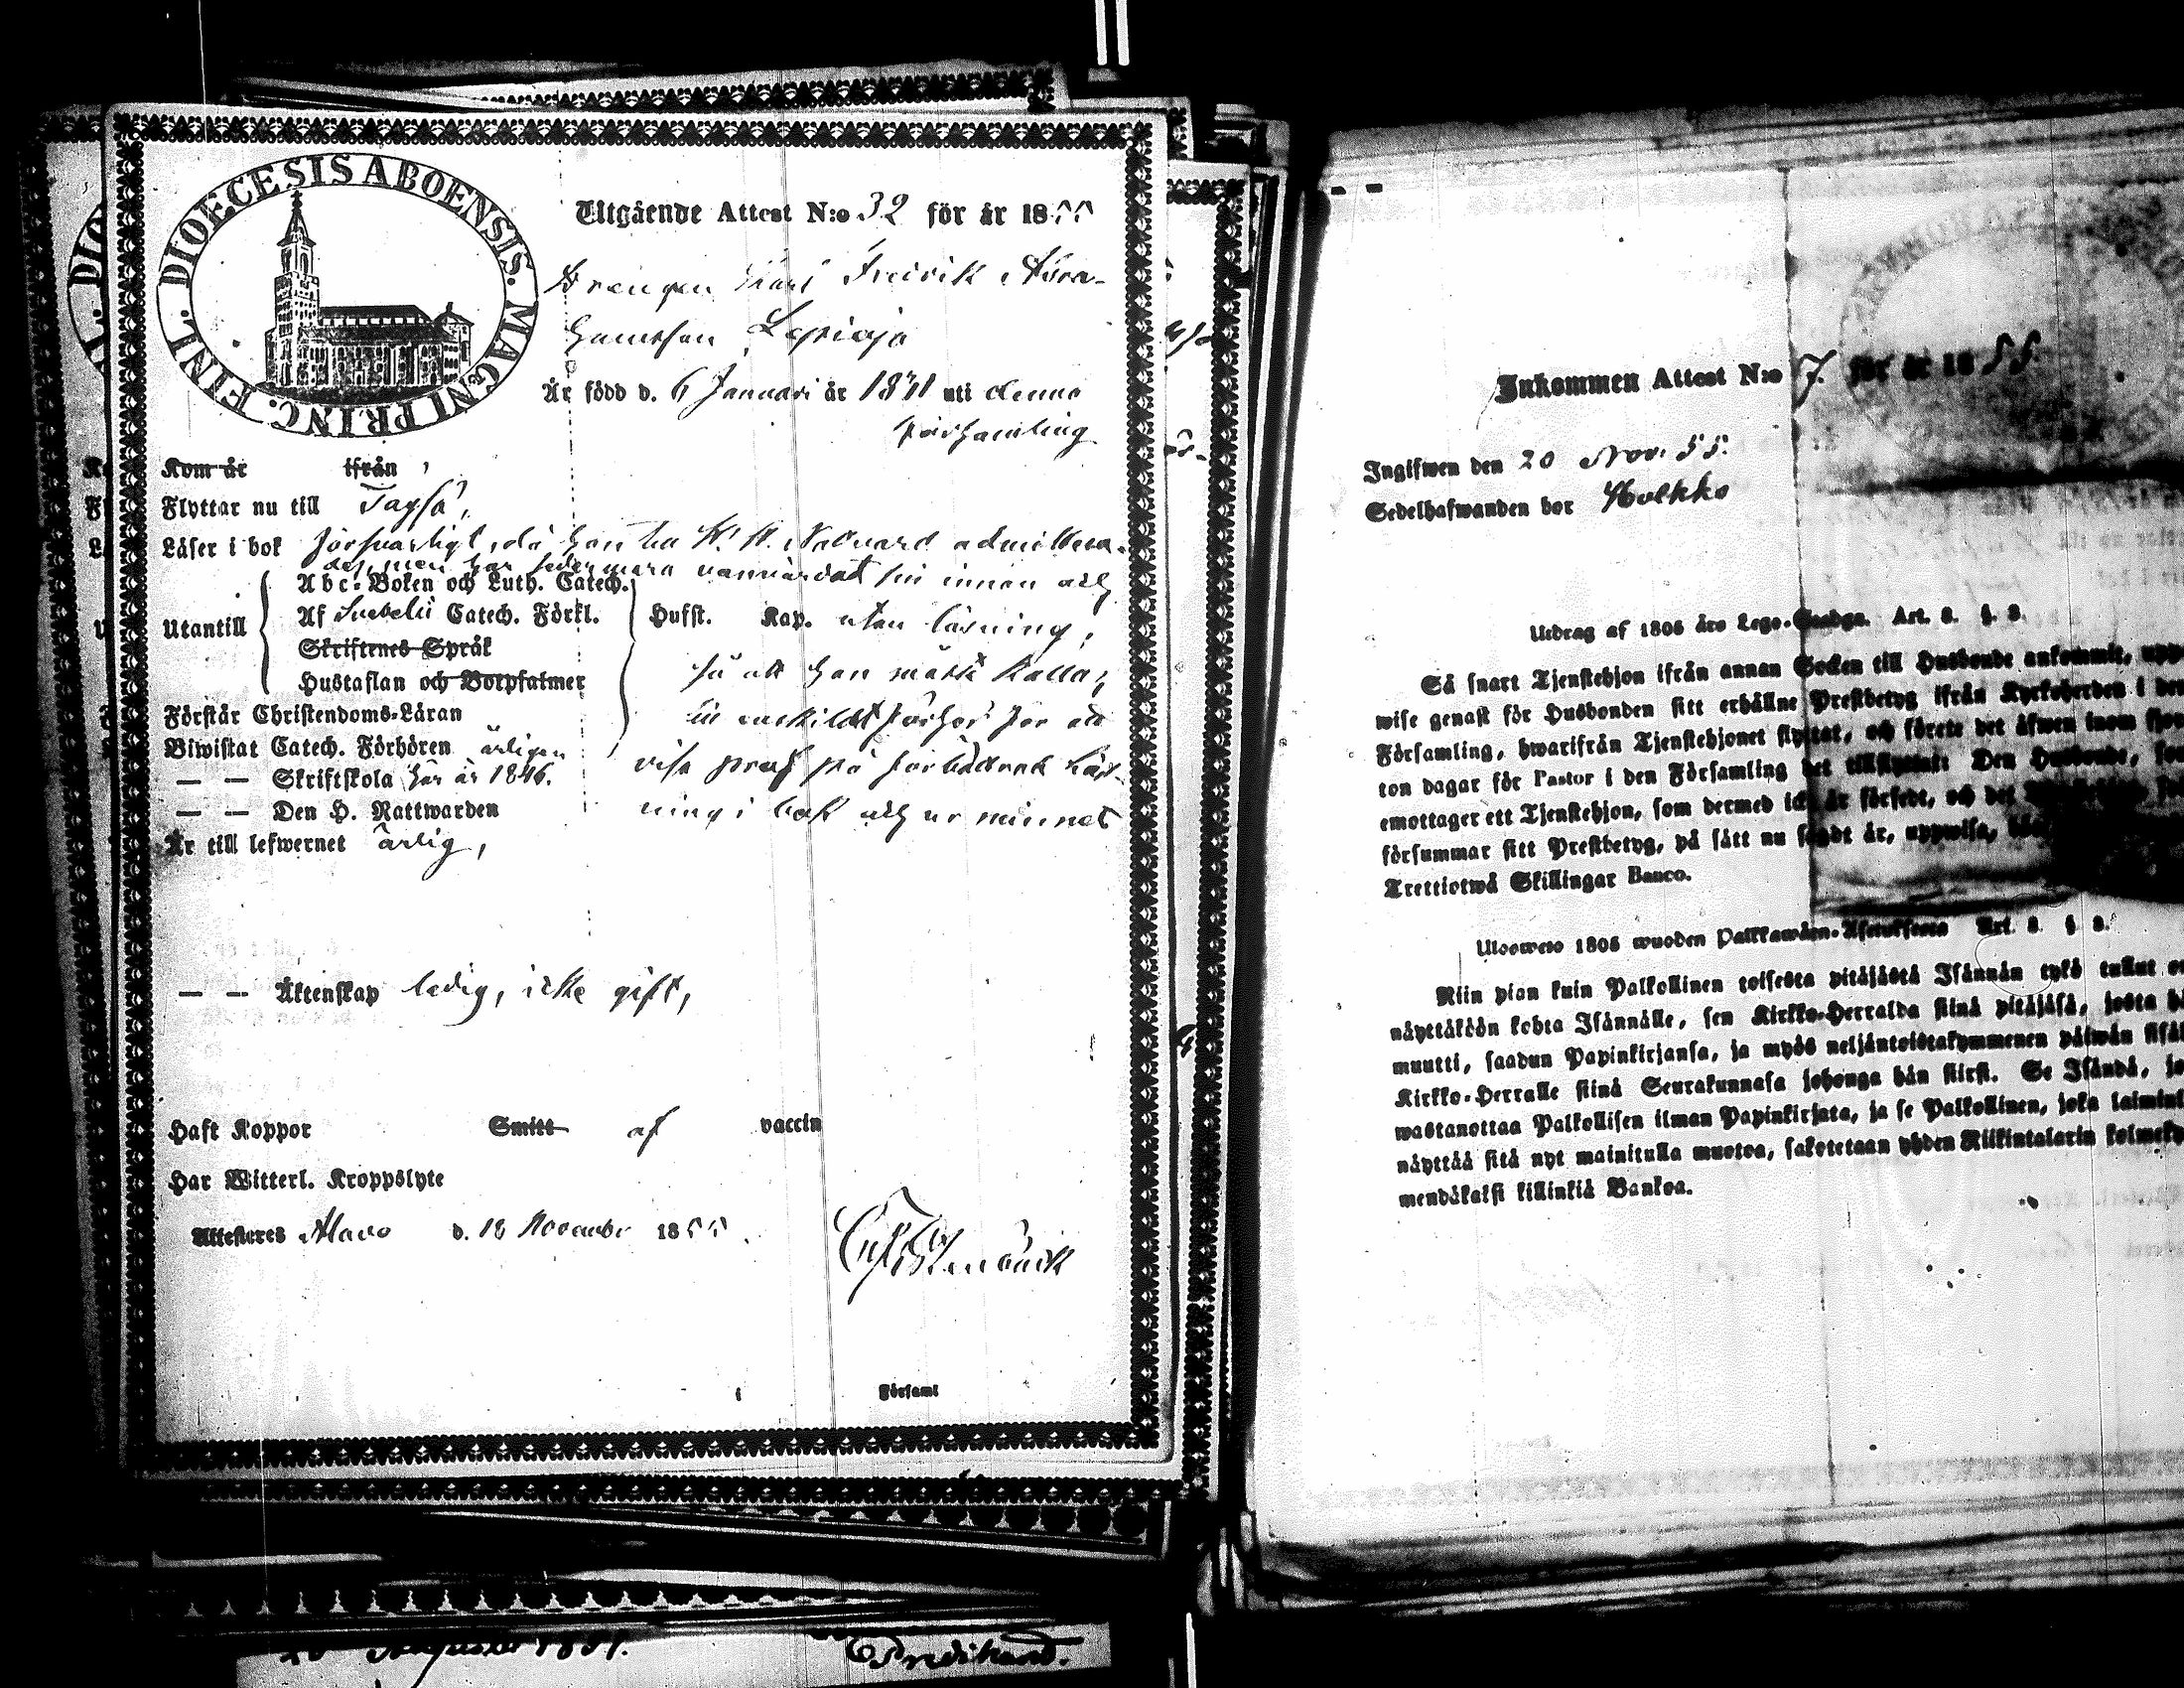 DIOECESIS ABOENSIS. MAGNI PRINC. FINL.
Utgående Attest N:o 32 för år 1855
Drengen Karl Fredrik Abra-
hamsson Lepioja
Är född d. 6 Januari år 1831 uti denna
församling
Kom år ifrån
Flyttar nu till Tayså,
Läser i bok försvarligt, då han till H. H. Nattvard admittera-
des, men har sedermera vanvårdat sin innan och
Utantill
Abc-Boken och Luth. Catech.
Af Svebelii Catech. Förkl.
Skriftenes Språk
Hustaflan och Botpsalmer
Husst. Kap. utan läsning,
så att han måste kallas
till enskildt förhör för att
visa prof på förbättrad läs-
ning i bok och ur minnet
Förstår Christendoms-Läran
Biwistat Catech. Förhören årligen
— — Skriftskola här år 1846.
— — Den H. Nattwarden
Är till lefwernet ärlig,
— — Äktenskap ledig, icke gift,
Haft Koppor Smitt af vaccin
Har Witterl. Kroppslyte
Attesteres Alavo d. 18 November 1855.
Församl
Inkommen Attest N:o 7. för år 1855.
Ingifwen den 20 Nov. 55.
Sedelhafwanden bor Holkko
Utdrag af 1805 års Lego-Stadga. Art. 8. §. 3.
Så snart Tjenstehjon ifrån annan Socken till Husbonde ankommit, upp-
wise genast för Husbonden sitt erhållne Prestbetyg ifrån Kyrkoherden i den
Församling, hwarifrån Tjenstehjonet flyttat, och förete det äfwen inom fjor-
ton dagar för Pastor i den Församling det tillflyttat: Den Husbonde, som
emottager ett Tjenstehjon, som dermed icke är försedt, och det
försummar sitt Prestbetyg, på sätt nu sagdt är, uppwisa,
Trettiotwå Skillingar Banco.
Uloswero 1805 wuoden Palkkawäen-Asetuksesta Art. 8. §. 3.
Niin pian kuin Palkollinen toisesta pitäjästä Isännän tykö tullut
näyttäköön kohta Isännälle, sen Kirkko-Herralda siinä pitäjäsä, josta hän
muutti, saadun Papinkirjansa, ja myös neljäntoistakymmenen päiwän sisäl
Kirkko-Herralle siinä Seurakunnasa johonga hän siirsi. Se Isändä, jo
wastanottaa Palkollisen ilman Papinkirjata, ja se Palkollinen, joka laimin
näyttää sitä nyt mainitulla muotoa, sakotetaan yhden Riikintalarin kolmeky
mendäkaksi killinkiä Bankoa.
Augusti 1851.